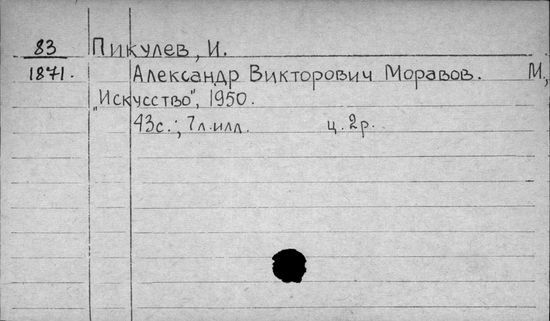 83 Пикулев, И.
1871. Александр Викторович Моравов. М,
"Искусство", 1950.
43с.; 7л.илл. ц. 2р.